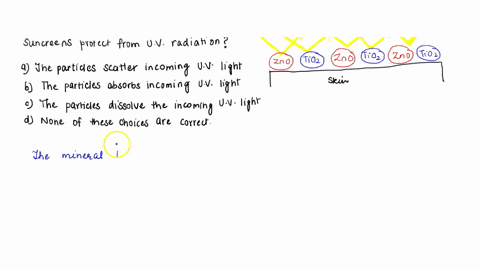 Suncreens protect from U.V. radiation?
a) The particles scatter incoming U.V. light
b) The particles absorbs incoming U.V. light
c) The particles dissolve the incoming U.V. light
d) None of these choices are correct.
The mineral
ZnO TiO2 ZnO TiO2 ZnO TiO2
skin